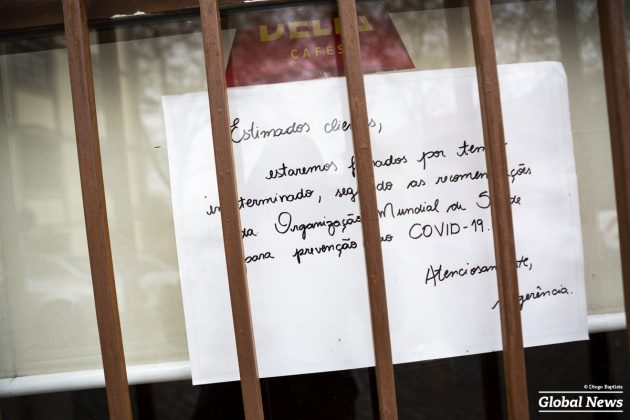 DELTA
CAFÉS
Estimados clientes,
estaremos fechados por tempo
indeterminado, seguindo as recomendações
da Organização Mundial de Saúde
para prevenção ao COVID-19.
Atenciosamente,
a gerência.
© Diogo Baptista
Global News